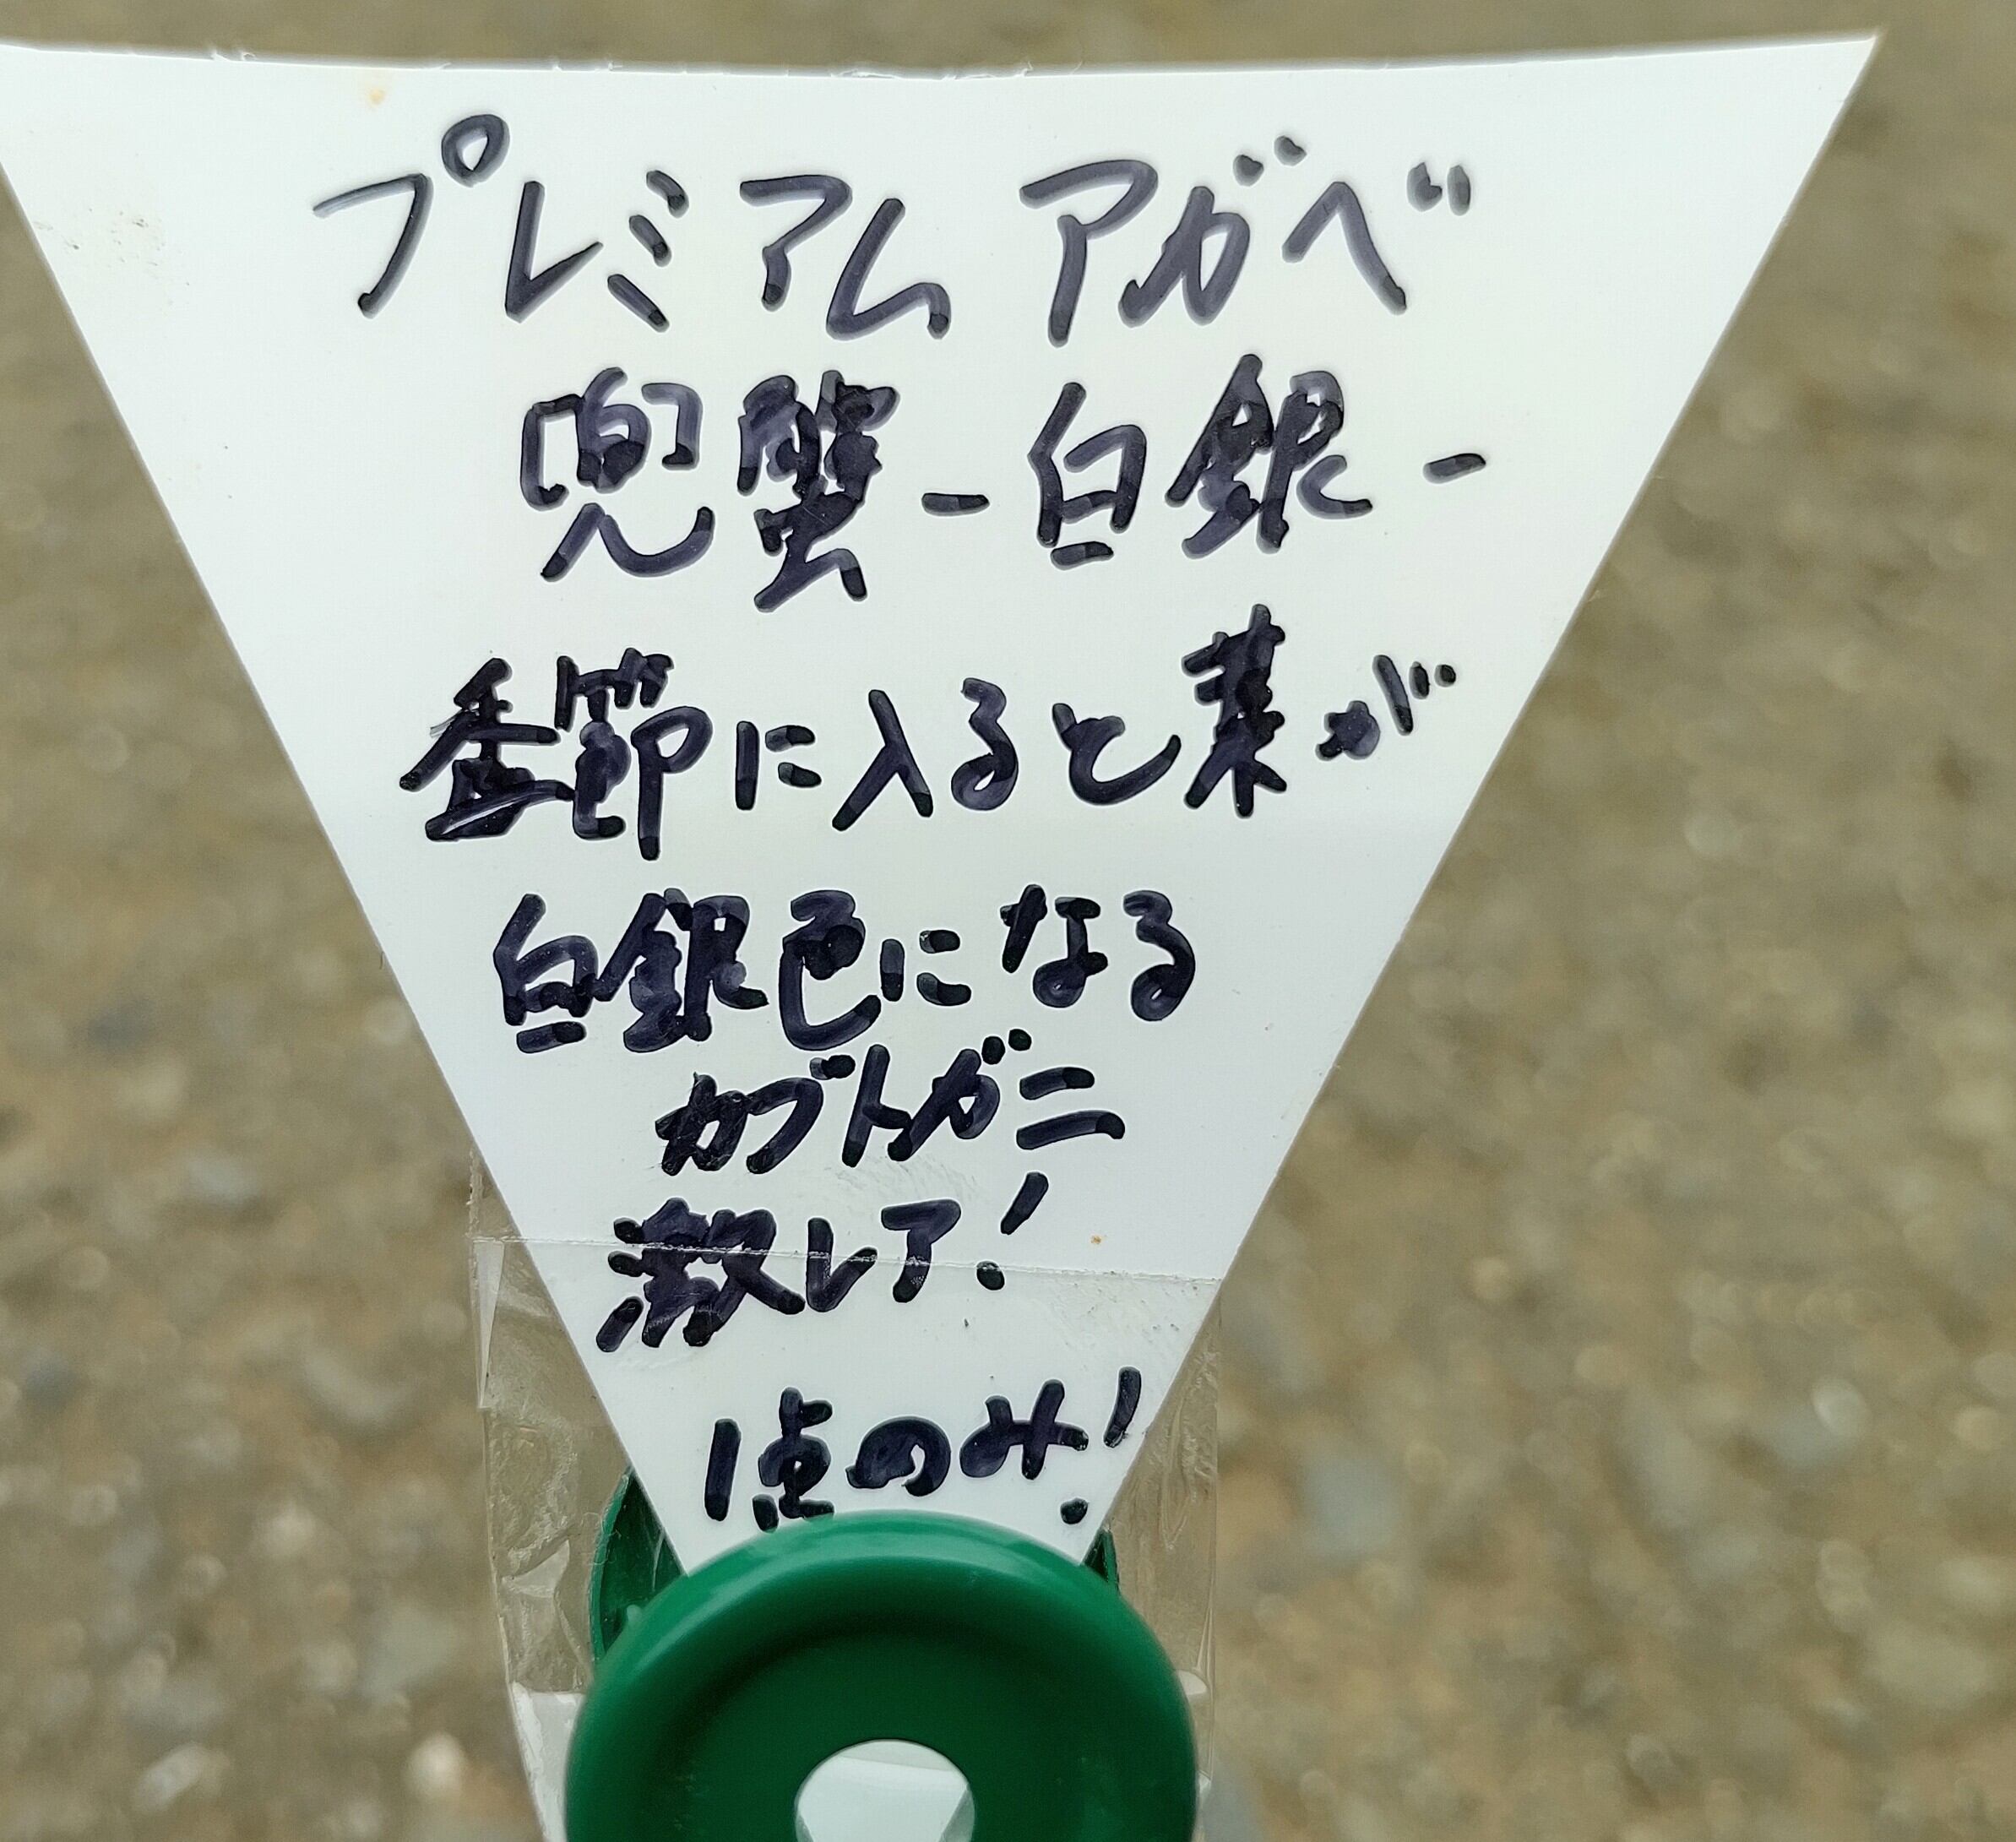 プレミアム アガベ
兜蟹-白銀-
季節に入ると葉が
白銀色になる
カブトガニ
激レア!
1点のみ!